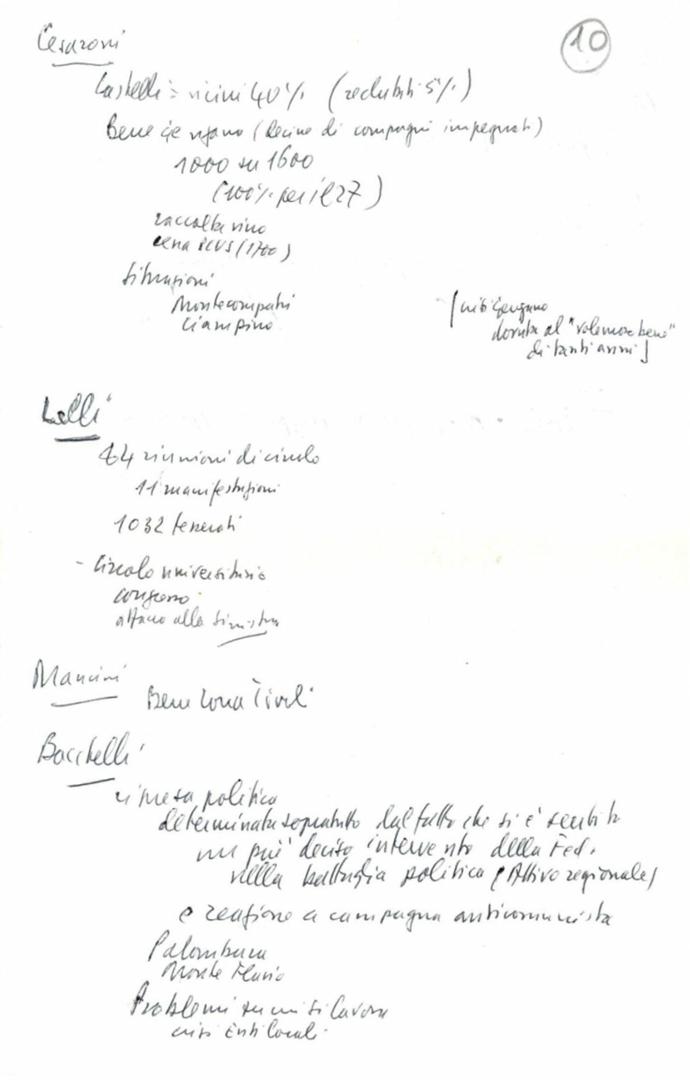 10
Cesaroni
Castelli = vicini 40% (reclutati 5%)
Bene Genzano (decine di compagni impegnati)
1000 su 1600
(100% per il 27)
raccolta vino
cena PCUS (1700)
Situazioni
Montecompatri
Ciampino
[crisi Genzano
dovuta al "volemose bene"
di tanti anni]
Lelli
44 riunioni di circolo
11 manifestazioni
1032 tesserati
- Circolo universitario
congresso
attacco alla sinistra
Mancini
Bene zona Tivoli
Bacchelli
ripresa politica
determinata sopratutto dal fatto che si è sentito
un più deciso intervento della Fed.
nella battaglia politica (Attivo regionale)
e reazione a campagna anticomunista
Palombara
Monte Flavio
Problemi su cui si lavora
crisi Enti locali